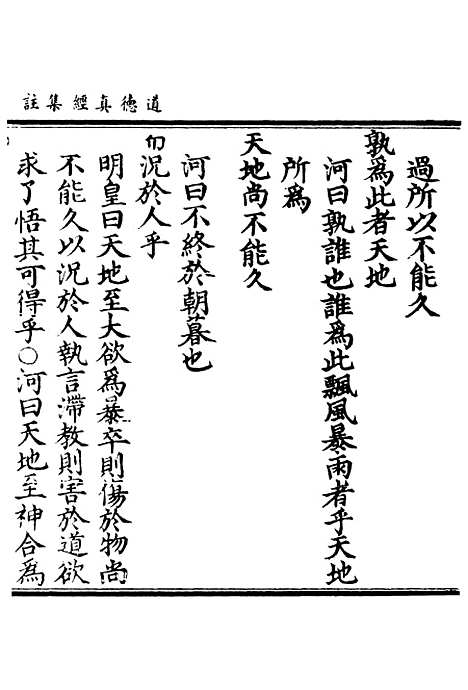 道德真經集註
過所以不能久
孰為此者天地
河曰孰誰也誰為此飄風暴雨者乎天地
所為
天地尚不能久
河曰不終於朝暮也
而況於人乎
明皇曰天地至大欲為暴卒則傷於物尚
不能久以況於人執言滯教則害於道欲
求了悟其可得乎○河曰天地至神合為